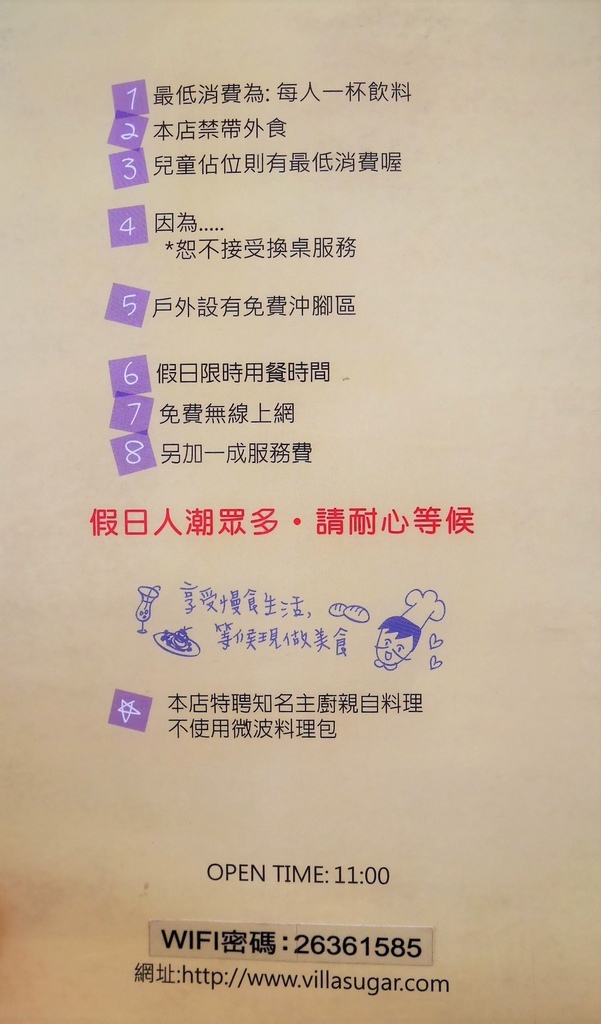 1 最低消費為: 每人一杯飲料
2 本店禁帶外食
3 兒童佔位則有最低消費喔
4 因為.....
*恕不接受換桌服務
5 戶外設有免費沖腳區
6 假日限時用餐時間
7 免費無線上網
8 另加一成服務費
假日人潮眾多・請耐心等候
享受慢食生活,
等候現做美食
本店特聘知名主廚親自料理
不使用微波料理包
OPEN TIME: 11:00
WIFI密碼：26361585
網址:http://www.villasugar.com